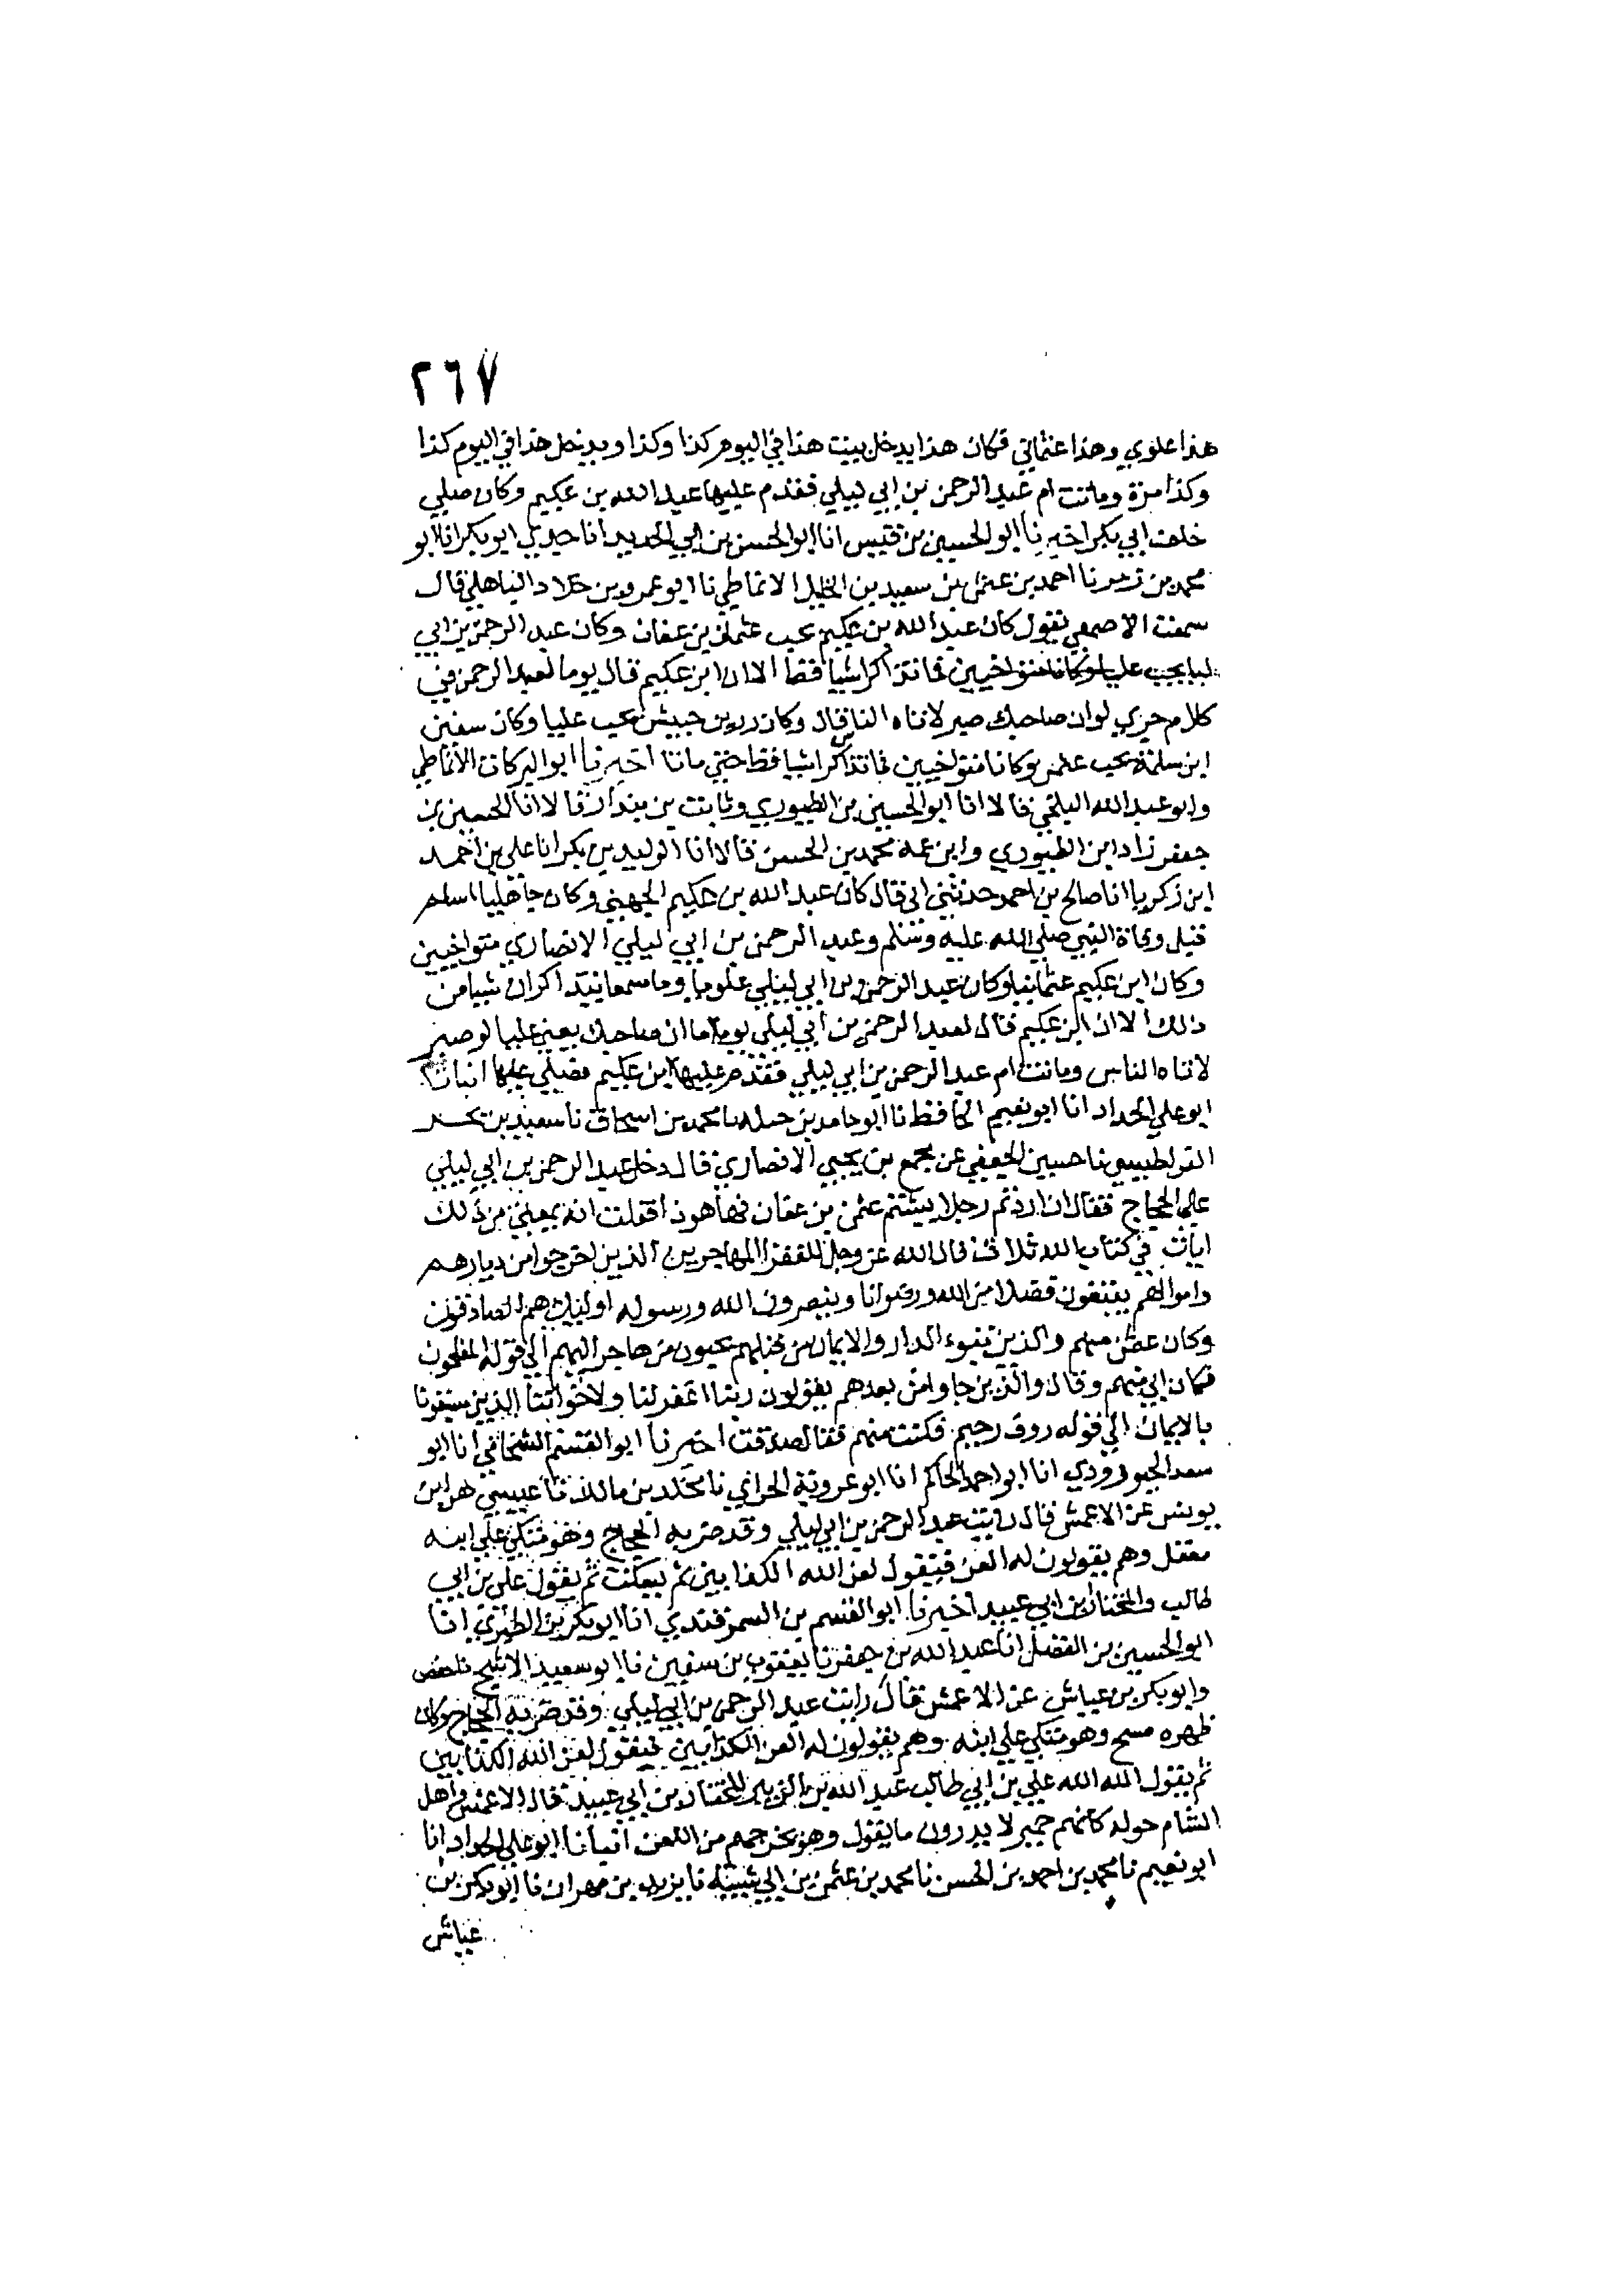 ٢٦٧
هذا علوي وهذا عثماني فكان هذا يدخل بيت هذا في اليوم كذا وكذا ويدخل هذا في اليوم كذا
وكذا مرة وماتت ام عبد الرحمن بن ابي ليلي فقدم عليها عبد الله بن عكيم وكان صلي
خلف ابي بكر اخبرنا ابو الحسين بن قبيس انا ابو الحسن بن ابي الحديد انا جدي ابو بكر انا ابو
محمد بن زبر نا احمد بن عثمن بن سعيد بن الخليل الانماطي نا ابو عمرو بن خلاد الباهلي قال
سمعت الاصمعي يقول كان عبد الله بن عكيم يحب عثمان بن عفان وكان عبد الرحمن بن ابي
ليلي يحب عليا وكانا متواخيين فما تذاكرا شيا قط الا ان ابن عكيم قال يوما لعبد الرحمن في
كلام جري لو ان صاحبك صبر لاتاه الناس قال وكان زر بن حبيش يحب عليا وكان سفين
ابن سلمة يحب عثمن وكانا متواخيين فما تذاكرا شيا قط حتي ماتا اخبرنا ابو البركات الانماطي
وابو عبد الله البلخي قالا انا ابو الحسين بن الطيوري وثابت بن بندار قالا انا الحسين بن
جعفر زاد ابن الطيوري وابن عمه محمد بن الحسن قالا انا الوليد بن بكر انا علي بن احمد
ابن زكريا انا صالح بن احمد حدثني ابي قال كان عبد الله بن عكيم الجهني وكان جاهليا اسلم
قبل وفاة النبي صلي الله عليه وسلم وعبد الرحمن بن ابي ليلي الانصاري متواخيين
وكان ابن عكيم عثمانيا وكان عبد الرحمن بن ابي ليلي علويا وما سمعا يتذاكران شيا من
ذلك الا ان ابن عكيم قال لعبد الرحمن بن ابي ليلي يوما اما ان صاحبك يعني عليا لو صبر
لاتاه الناس وماتت ام عبد الرحمن بن ابي ليلي فقدم عليها ابن عكيم فصلي عليها انبانا
ابو علي الحداد انا ابو نعيم الحافظ نا ابو حامد بن جبله نا محمد بن اسحاق نا سعيد بن
القراطيسي نا حسين الجعفي عن مجمع بن يحيي الانصاري قال دخل عبد الرحمن بن ابي ليلي
علي الحجاج فقال ان اردتم رجلا يشتم عثمن بن عفان فها هو ذا فقلت انه يمنعني من ذلك
ايات في كتاب الله ثلاث قال الله عز وجل للفقرا المهاجرين الذين اخرجوا من ديارهم
واموالهم يبتغون فضلا من الله ورضوانا وينصرون الله ورسوله اوليك هم الصادقون
وكان عثمن منهم والذين تبوء الدار والايمان من قبلهم يحبون من هاجر اليهم الي قوله المفلحون
فكان ابي منهم وقال والذين جاوا من بعدهم يقولون ربنا اغفر لنا ولاخواننا الذين سبقونا
بالايمان الي قوله روف رحيم فكنت منهم فقال صدقت اخبرنا ابو القسم الشحامي انا ابو
سعد الجنزرودي انا ابو احمد الحاكم انا ابو عروبة الحراني نا مخلد بن مالك نا عيسي هو ابن
يونس عن الاعمش قال رايت عبد الرحمن بن ابي ليلي وقد ضربه الحجاج وهو متكي علي ابنه
وهم يقولون له العن فيقول لعن الله الكذابين ثم يسكت ثم يقول علي بن ابي
طالب والمختار بن ابي عبيد اخبرنا ابو القسم بن السمرقندي انا ابو بكر بن الطبري انا
ابو الحسين بن الفضل انا عبد الله بن جعفر نا يعقوب بن سفين نا ابو سعيد الاشج نا حفص
وابو بكر بن عياش عن الاعمش قال رايت عبد الرحمن بن ابي ليلي وقد ضربه الحجاج وكان
ظهره مسح وهو متكي علي ابنه وهم يقولون له العن الكذابين فيقول لعن الله الكذابين
ثم يقول الله الله علي بن ابي طالب عبد الله بن الزبير المختار بن ابي عبيد قال الاعمش واهل
الشام حوله كانهم حمير لا يدرون ما يقول وهو يخرجهم من اللعن انبانا ابو علي الحداد انا
ابو نعيم نا محمد بن احمد بن الحسن نا محمد بن عثمن بن ابي شيبة نا يزيد بن مهران نا ابو بكر بن
عياش